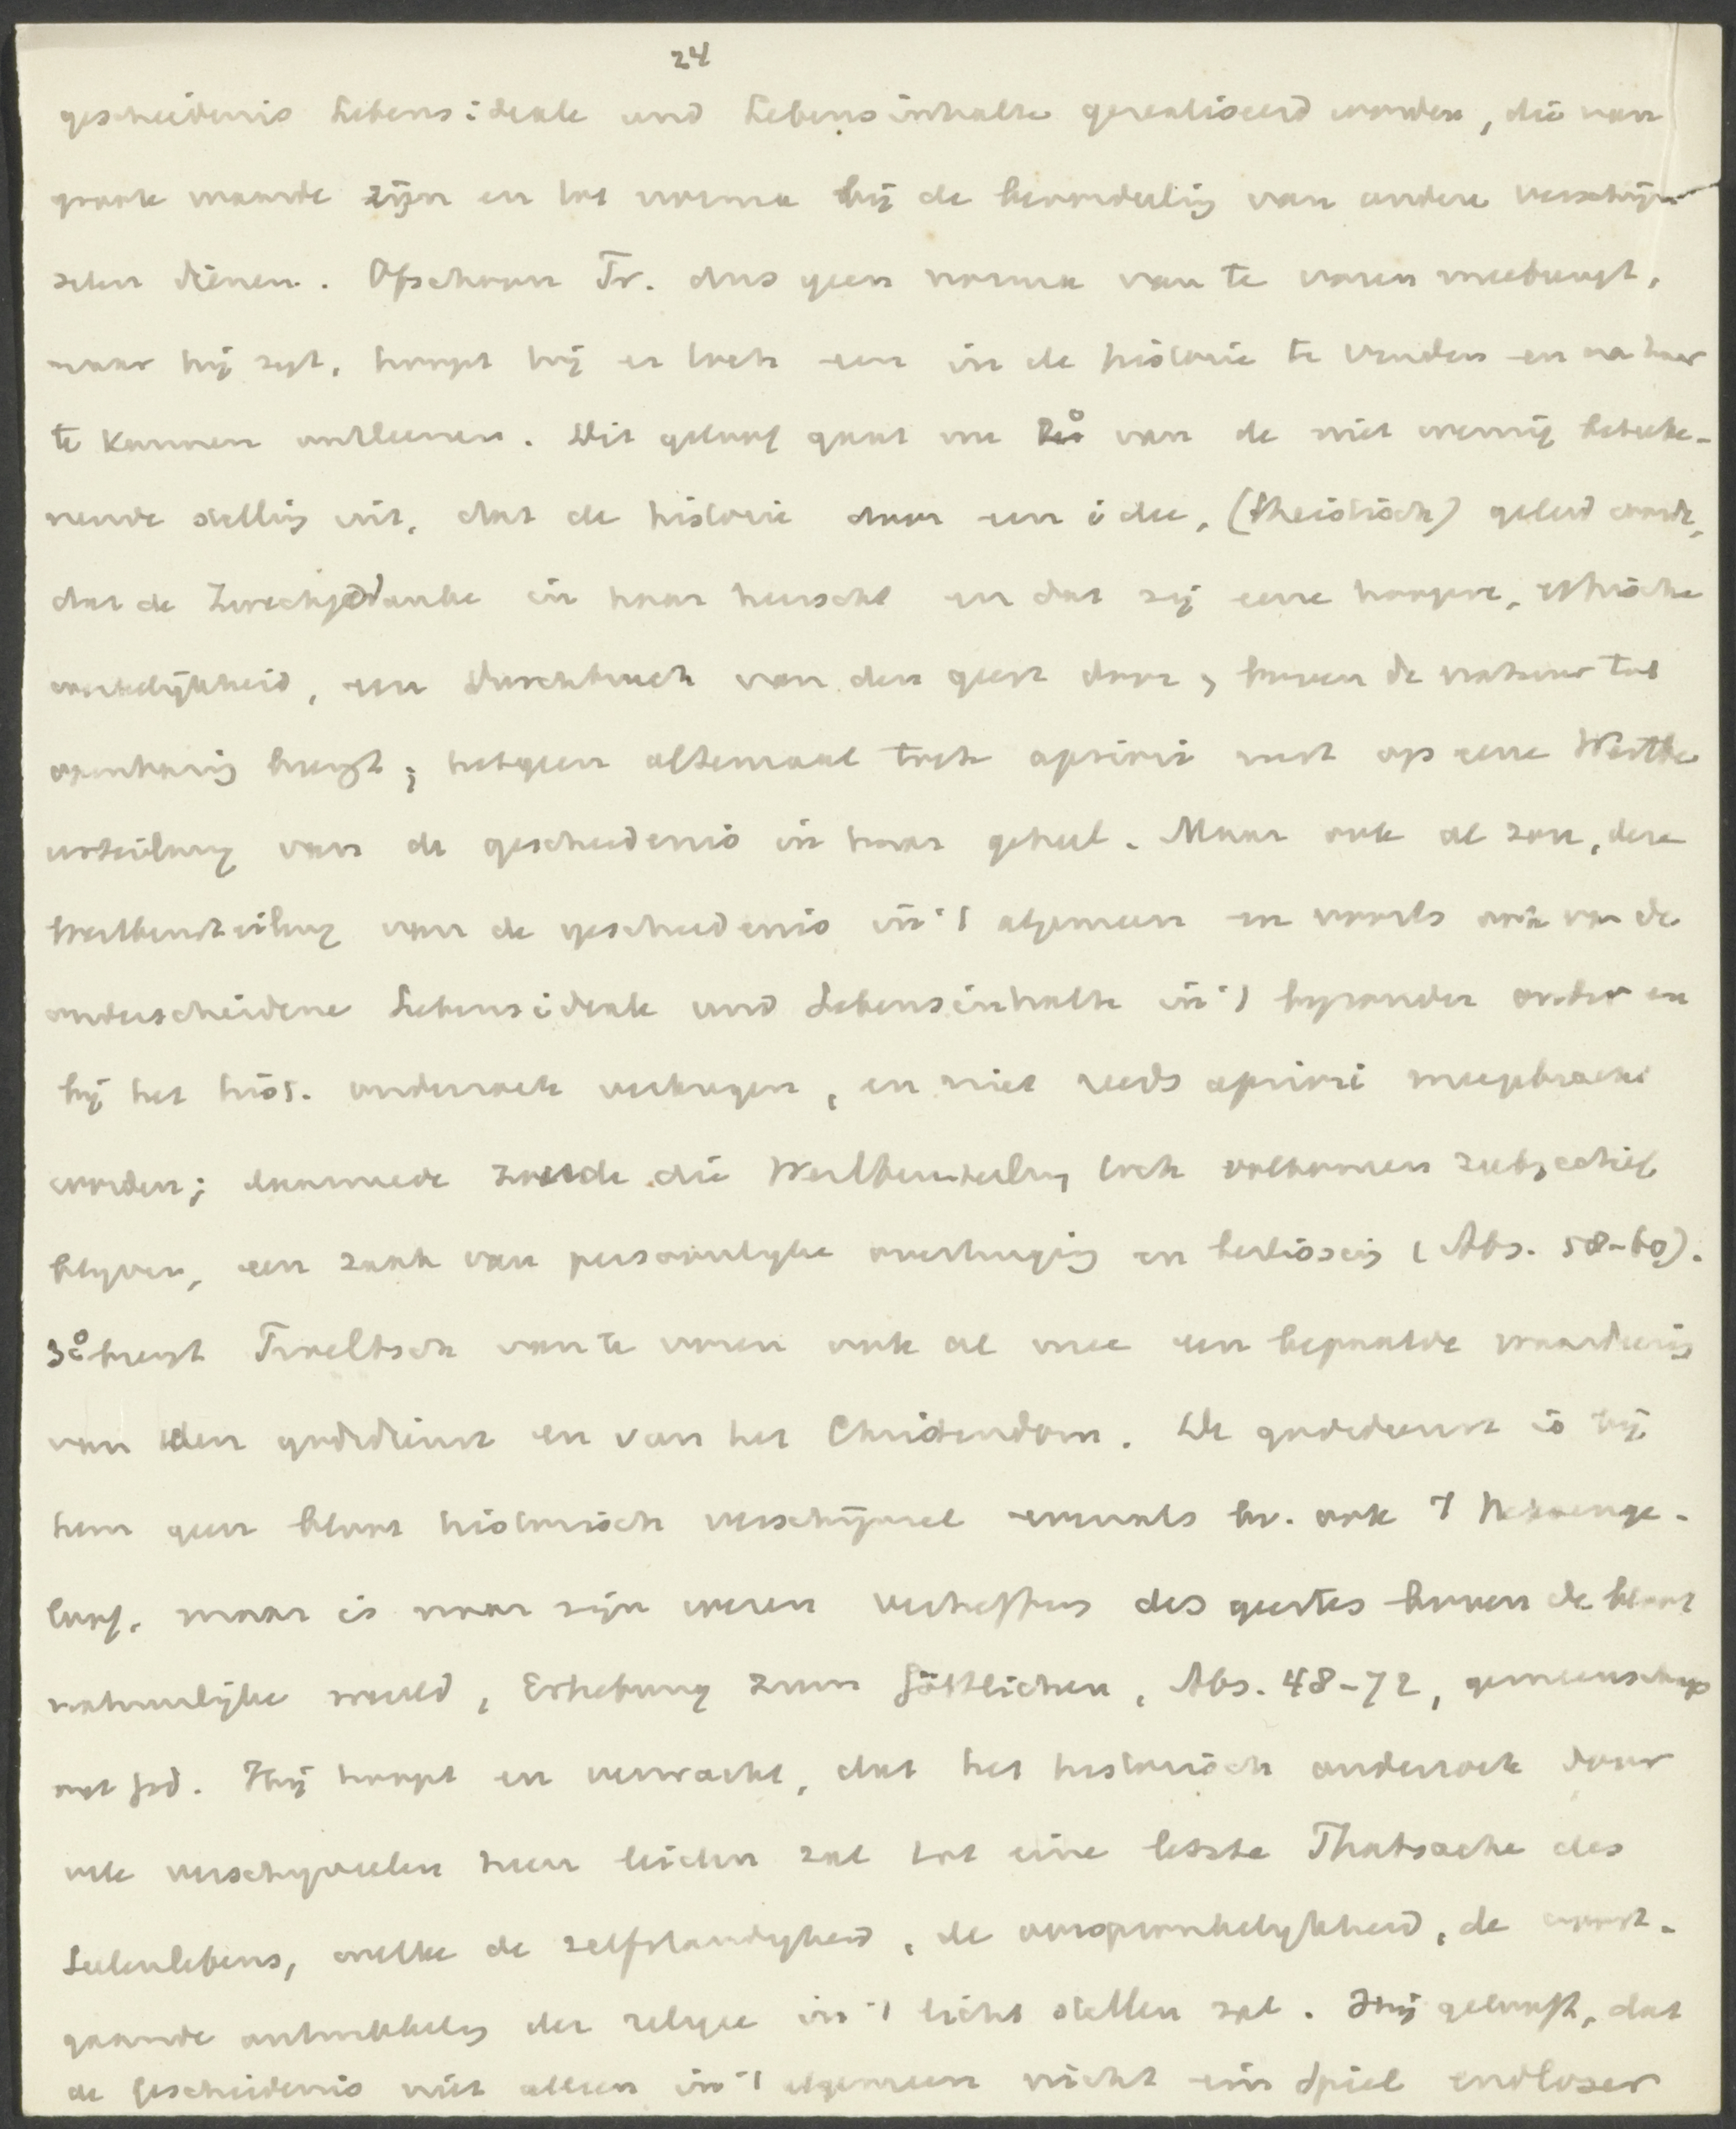 24
geschiedenis Lebensideale und Lebensinhalte gerealiseerd worden, die van
groote waarde zijn en tot norma bij de beoordeling van andere verschijn
selen dienen. Ofschoon Tr. dus geen norma van te voren meebrengt,
naar hij zegt, hoopt hij er toch een in de historie te vinden en na haar
te kunnen ontleenen. Dit geloof gaat nu 2o van de niet weinig beteeke-
nende stelling uit, dat de historie door een idee, (theistisch) geleid wordt,
dat de Zweckgedanke in haar heerscht en dat zij eene hoogere, ethische
werkelijkheid, een Durchbruch van den geest door, boven de natuur tot
openbaring brengt; hetgeen altemaal toch apriori rust op eene Werthbe
urteilung van de geschiedenis in haar geheel. Maar ook al zou, deze
Wertbeurteilung van de geschiedenis in 't algemeen en voorts ook van de
onderscheidene Lebensideale und Lebensinhalte in 't byzonder onder en
bij het hist. onderzoek verkregen, en niet reeds apriori meegebracht
worden; daarmede zoude die Wertbeurteilung toch volkomen subjectief
blyven, een zaak van persoonlyke overtuiging en beslissing (Abs. 58-60).
3o brengt Troeltsch van te voren ook al mee een bepaalde waardeering
van den godsdienst en van het Christendom. De godsdienst is bij
hem geen bloot historisch verschijnsel evenals bv. ook 't heksenge-
loof, maar is naar zijn wezen verheffing des geestes boven de bloot
natuurlijke wereld, Erhebung zum Göttlichen, Abs. 48-72, gemeenschap
met God. Hij hoopt en verwacht, dat het historisch onderzoek door
vele verschynselen heen leiden zal tot eine letzte Thatsache des
Seelenlebens, welke de zelfstandigheid, de oorspronkelykheid, de voort-
gaande ontwikkeling der religie in 't licht stellen zal. Hij gelooft, dat
de geschiedenis niet alleen in 't algemeen nicht ein Spiel endloser